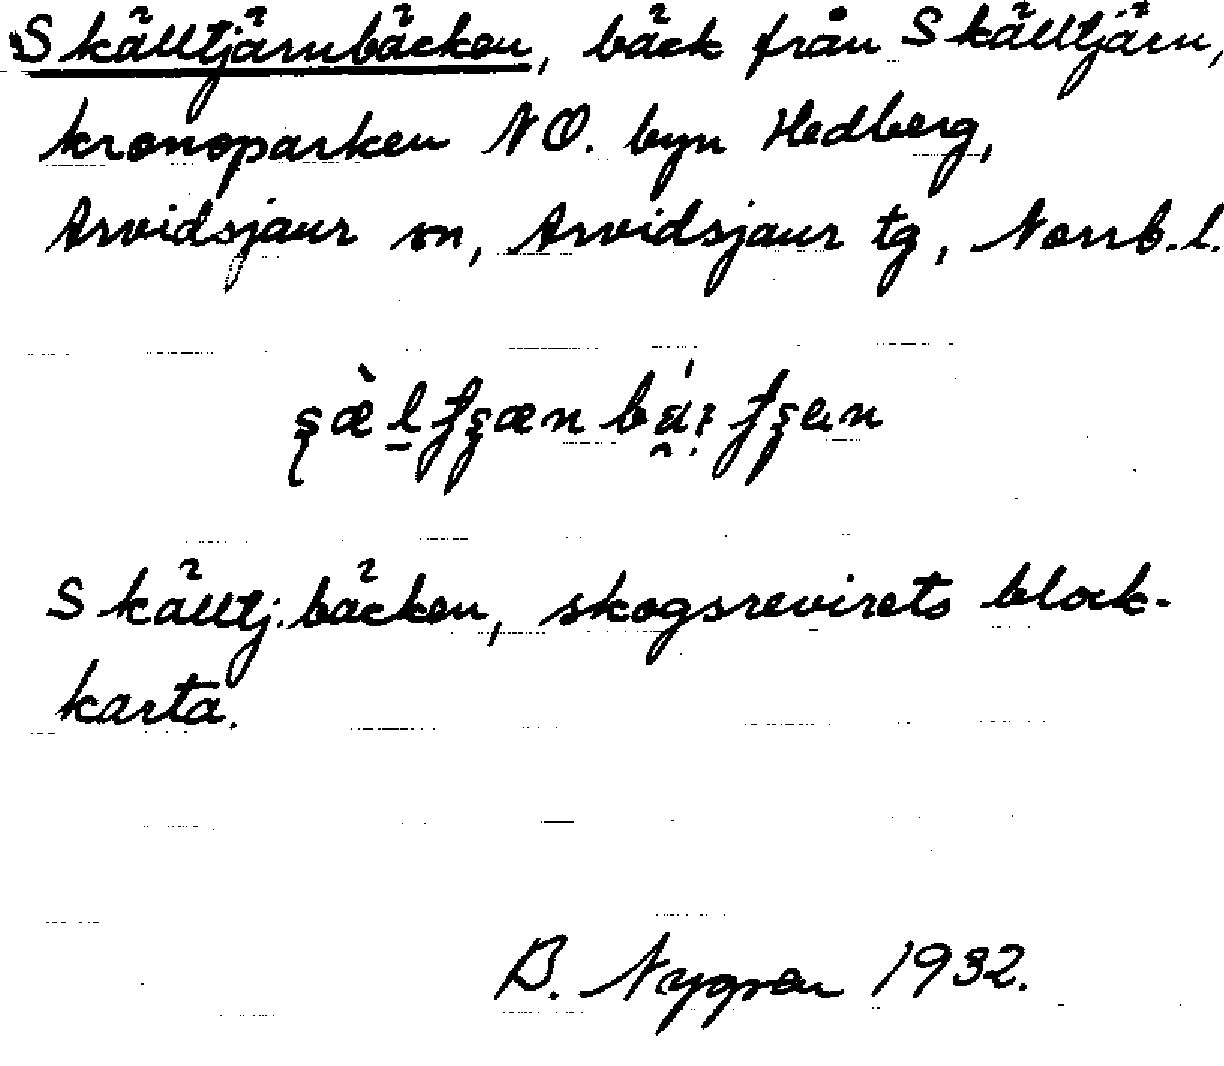 Skälltjärnbäcken, bäck från Skälltjärn,
kronoparken NO. byn Hedberg,
Arvidsjaur sn, Arvidsjaur tg, Norrb. l.
Skälltj. bäcken, skogsrevirets block-
karta.
B. Nygren 1932.